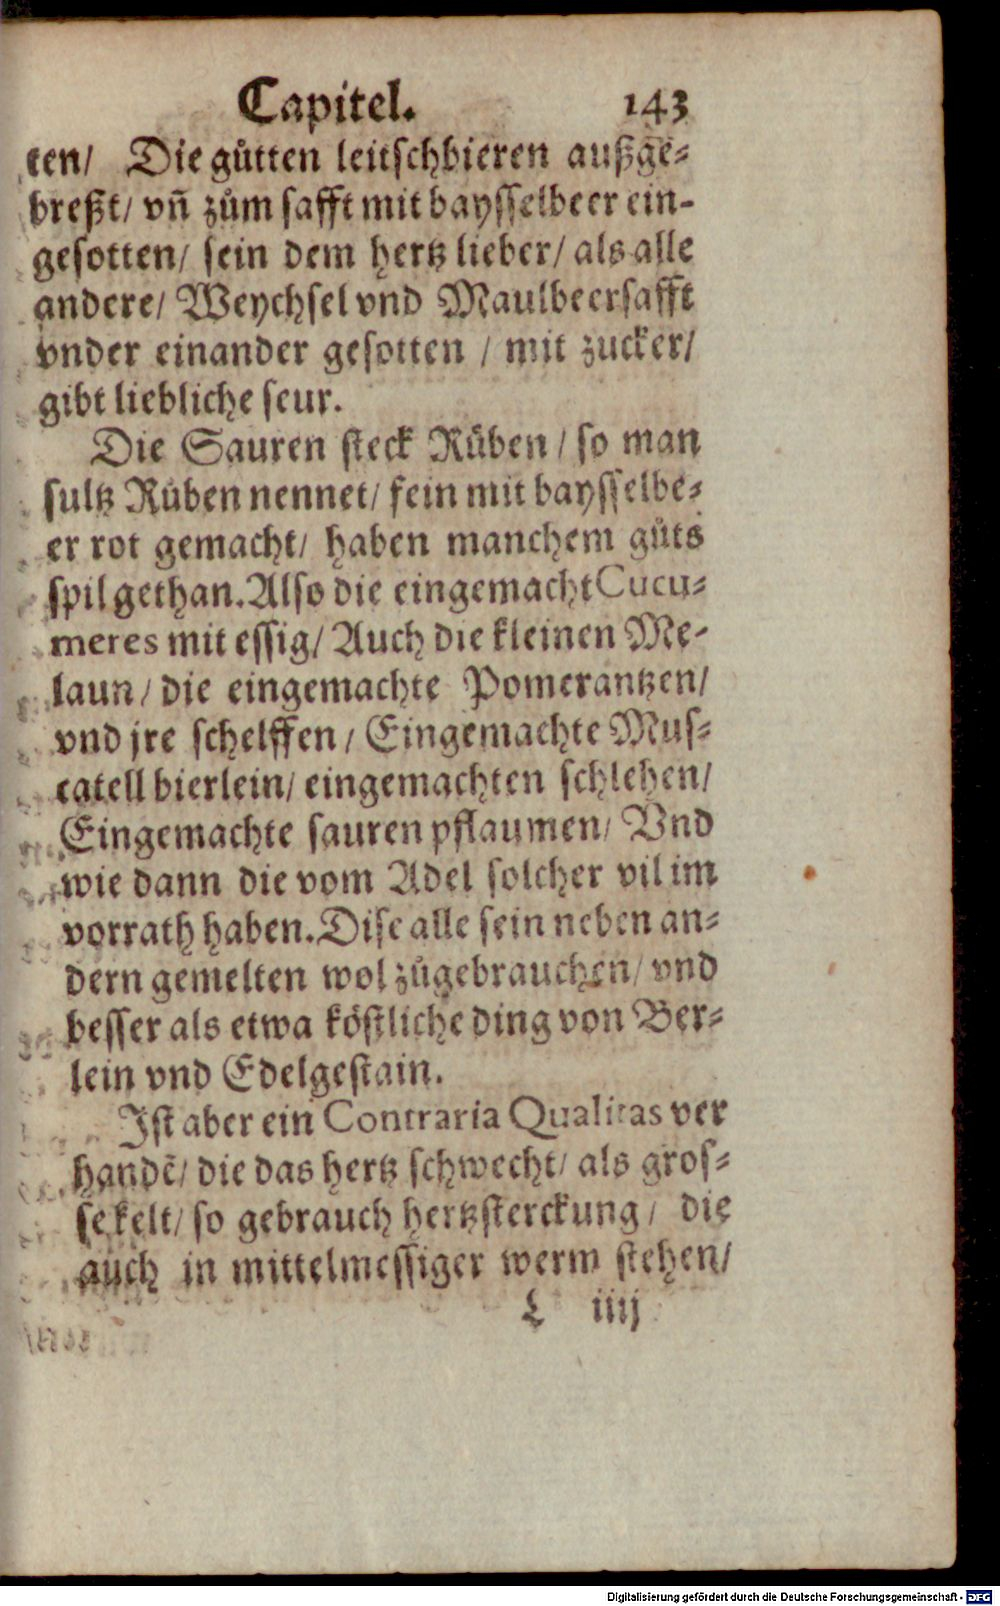 Capitel. 143
ten/ Die gůtten leitschbieren außge⸗
breßt/ vñ zům safft mit baysselbeer ein-
gesotten/ sein dem hertz lieber/ als alle
andere/ Weychsel vnd Maulbeersafft
vnder einander gesotten / mit zucker/
gibt liebliche seur.
Die Sauren steck Růben / so man
sultz Růben nennet/ fein mit baysselbe⸗
er rot gemacht/ haben manchem gůts
spil gethan. Also die eingemacht Cucu⸗
meres mit essig/ Auch die kleinen Me-
laun / die eingemachte Pomerantzen/
vnd jre schelffen / Eingemachte Mus⸗
catell bierlein/ eingemachten schlehen/
Eingemachte sauren pflaumen/ Vnd
wie dann die vom Adel solcher vil im
vorrath haben. Dise alle sein neben an⸗
dern gemelten wol zůgebrauchen/ vnd
besser als etwa köstliche ding von Ber⸗
lein vnd Edelgestain.
Ist aber ein Contraria Qualitas ver
handẽ/ die das hertz schwecht/ als gros⸗
se kelt/ so gebrauch hertzsterckung / die
auch in mittelmessiger werm stehen/
L iiij
Digitalisierung gefördert durch die Deutsche Forschungsgemeinschaft - DFG